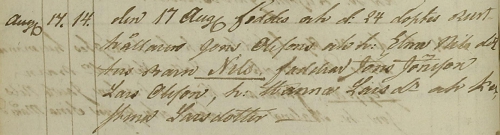 Aug 17. 14. den 17 Aug föddes och d. 24 döptes Rust
hållaren Jöns Olssons och h. Elna Nils dot
ters Barn Nils. faddrar Jöns Jönsson
Lars Olsson, h. Hanna Lars dr och
Larsdotter